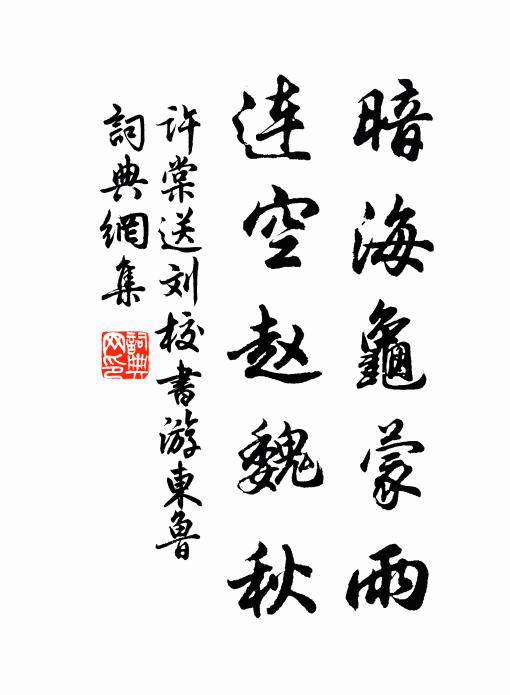 暗海龜蒙雨
连空赵魏秋
许棠送刘校書游東魯
詞典網集
詞典網印